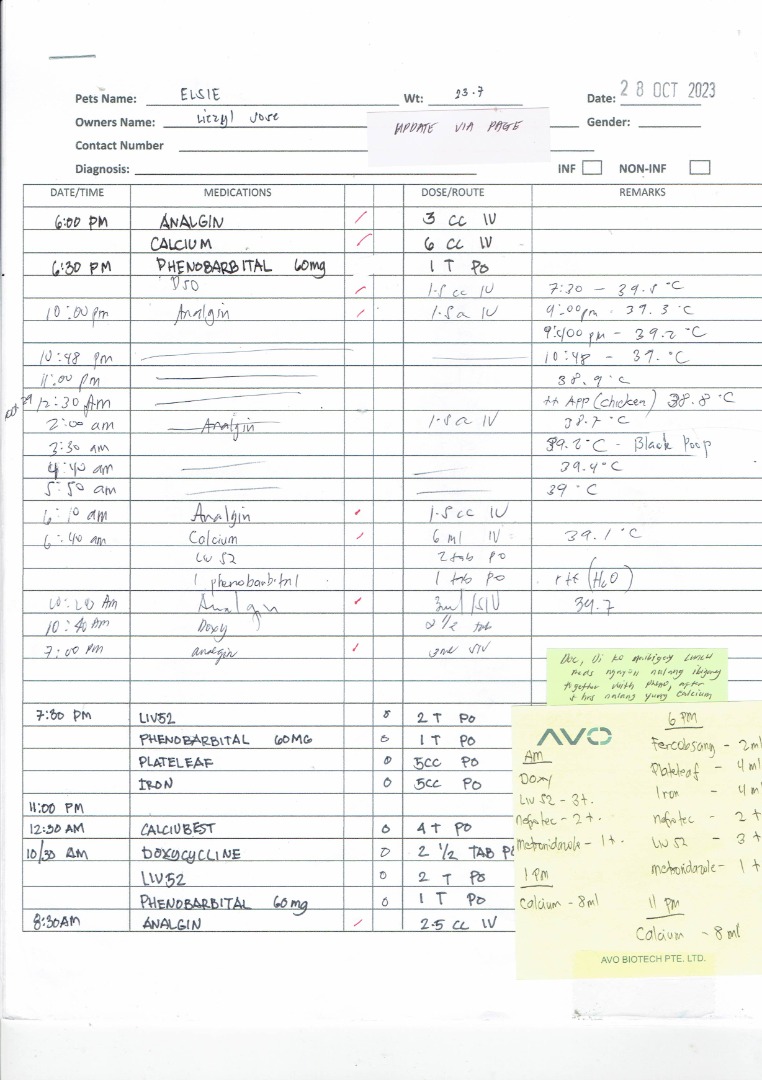 Pets Name: ELSIE Wt: 23.7 Date: 28 OCT 2023
Owners Name: Liezyl Jose Gender:
UPDATE VIA PAGE
Contact Number
Diagnosis: INF NON-INF
DATE/TIME MEDICATIONS DOSE/ROUTE REMARKS
6:00 PM ANALGIN 3 cc IV
CALCIUM 6 cc IV
6:30 PM PHENOBARBITAL 60mg 1 T PO
D50 1.5 cc IV 7:30 - 39.5 °C
10:00pm Analgin IV 9:00pm - 39.3 °C
pm - 39.2 °C
10:48 pm 10:48 - 39. °C
11:00 pm 38.9 °C
oct 29 12:30 Am ++ App (chicken) 38.8 °C
2:00 am Analgin IV 38.7 °C
3:30 am 39.2 °C - Black Poop
4:40 am 39.4 °C
5:50 am 39 °C
6:10 am Analgin 1.5 cc IV
6:40 am Calcium 6 ml IV 39.1 °C
Liv 52 2 tab PO
1 phenobarbital 1 tab PO (H2O)
10:20 Am Analgin 39.7
10:40 Am Doxy 2 1/2 tab
7:00 pm analgin
Doc, di ko naibigay lunch
meds ngayon nalang ibigay
together with pheno, after
hrs nalang yung calcium
7:30 PM LIV52 2 T PO
PHENOBARBITAL 60MG 1 T PO
PLATELEAF 5cc PO
IRON 5cc PO
11:00 PM
12:30 AM CALCIUBEST 4 T PO
10/30 AM DOXYCYCLINE 2 1/2 TAB
LIV52 2 T PO
PHENOBARBITAL 60mg 1 T PO
8:30AM ANALGIN 2.5 cc IV
AVO
AM
DOXY
Liv 52 - 3 t.
nefrotec - 2 t.
metronidazole - 1 t.
1 PM
Calcium - 8ml
6 PM
Fercobsang - 2ml
Plateleaf - 4 ml
Iron - 4 m
nefrotec - 2 t
Liv 52 - 3 t
metronidazole - 1 t
11 PM
Calcium - 8 ml
AVO BIOTECH PTE. LTD.